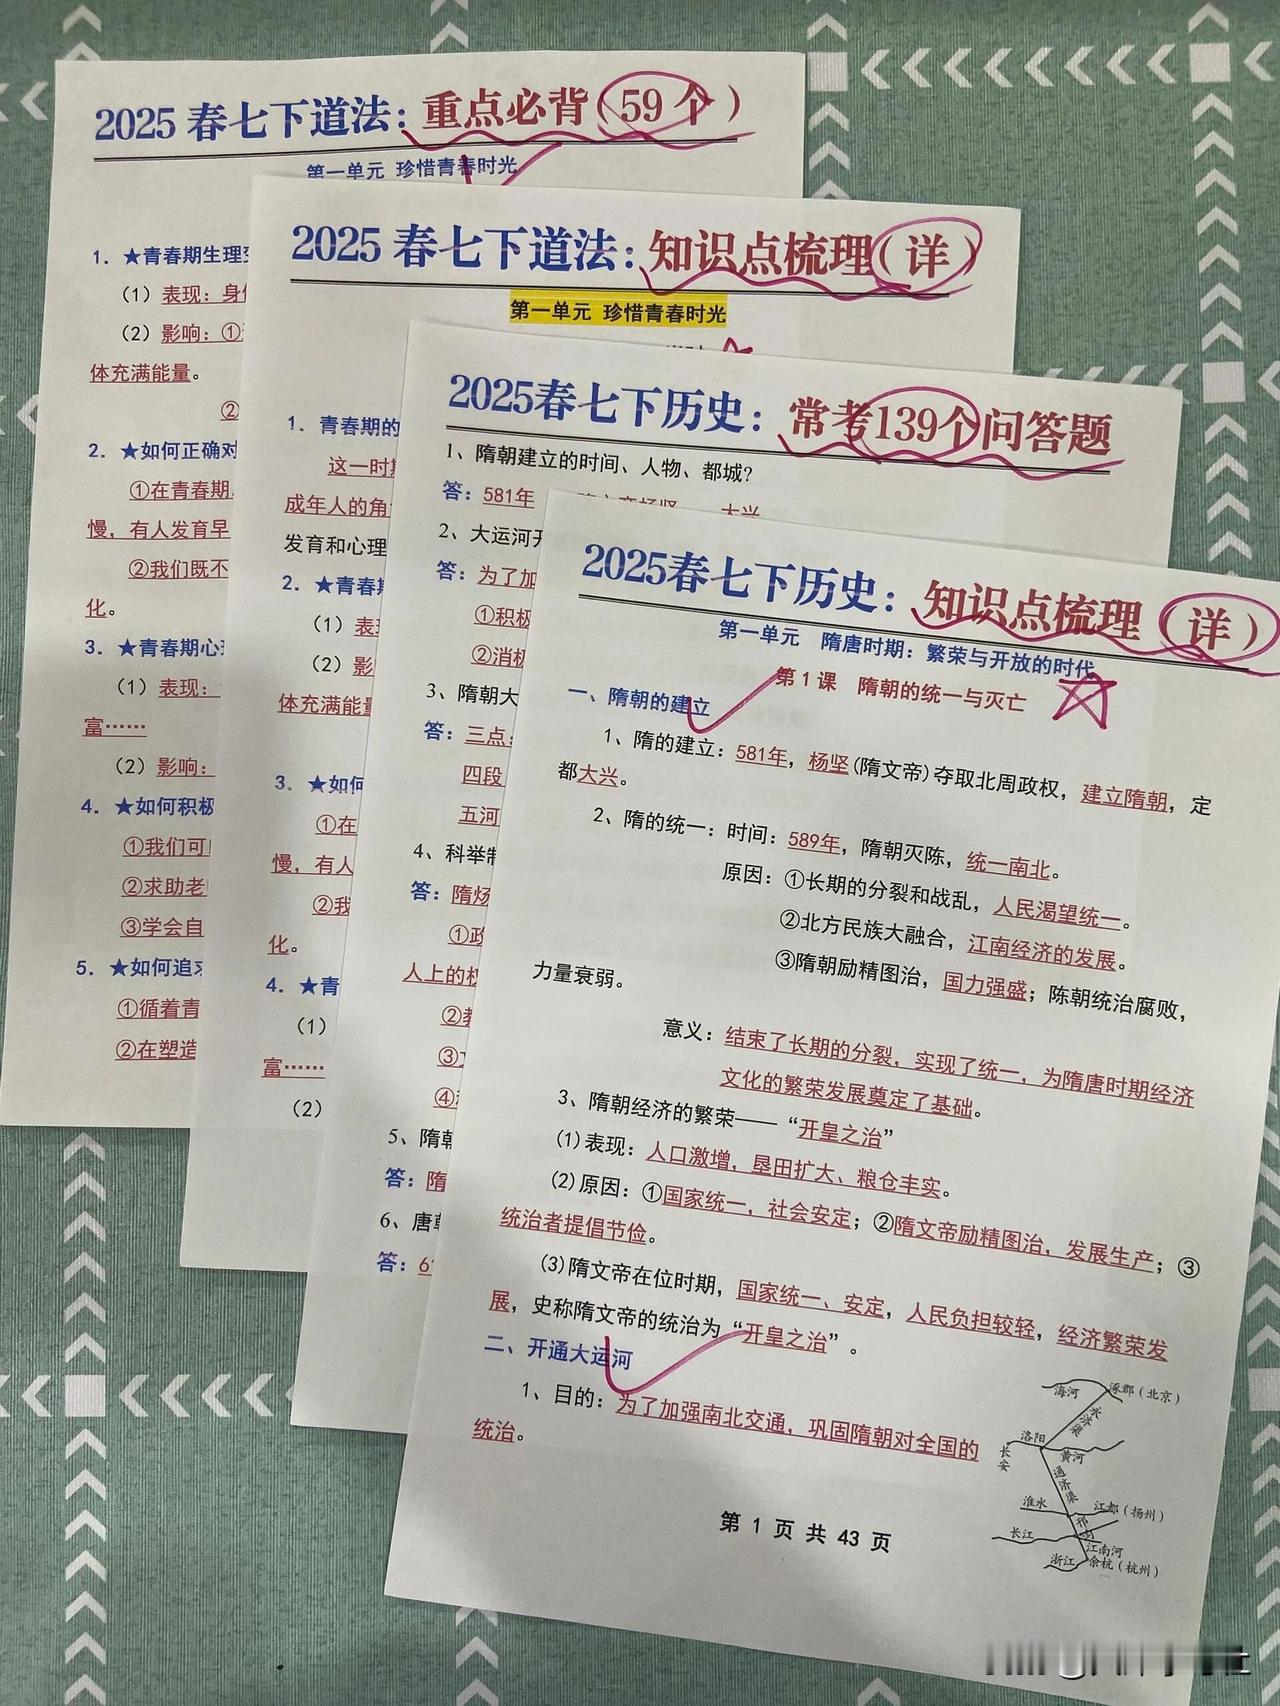 2025 春七下道法：重点必背（59 个）
第一单元 珍惜青春时光
1. ★青春期生理变
（1）表现：身体
（2）影响：①
体充满能量。
②
2. ★如何正确对
①在青春期
慢，有人发育早
②我们既不
化。
3. ★青春期心
（1）表现：
富……
（2）影响：
4. ★如何积极
①我们可
②求助老
③学会自
5. ★如何追求
①循着青
②在塑造
2025 春七下道法：知识点梳理（详）
第一单元 珍惜青春时光
1. 青春期的
这一时期
成年人的角
发育和心理
2. ★青春期
（1）表现
（2）影
体充满能量
3. ★如何
①在
慢，有人
②我
化。
4. ★青
（1）
富……
（2）
2025春七下历史：常考139个问答题
1、隋朝建立的时间、人物、都城？
答：581年 隋文帝杨坚 大兴
2、大运河开
答：为了加
①积极
②消极
3、隋朝大
答：三点：
四段
五河
4、科举制
答：隋炀
①政
人上的权
②教
③
④
5、隋朝
答：隋
6、唐朝
答：6
2025春七下历史：知识点梳理（详）
第一单元 隋唐时期：繁荣与开放的时代
第 1 课 隋朝的统一与灭亡
一、隋朝的建立
1、隋的建立：581年，杨坚(隋文帝)夺取北周政权，建立隋朝，定
都大兴。
2、隋的统一：时间：589年，隋朝灭陈，统一南北。
原因：①长期的分裂和战乱，人民渴望统一。
②北方民族大融合，江南经济的发展。
③隋朝励精图治，国力强盛；陈朝统治腐败，
力量衰弱。
意义：结束了长期的分裂，实现了统一，为隋唐时期经济
文化的繁荣发展奠定了基础。
3、隋朝经济的繁荣——“开皇之治”
(1)表现：人口激增，垦田扩大、粮仓丰实。
(2)原因：①国家统一，社会安定；②隋文帝励精图治，发展生产；③
统治者提倡节俭。
(3)隋文帝在位时期，国家统一、安定，人民负担较轻，经济繁荣发
展，史称隋文帝的统治为“开皇之治”。
二、开通大运河
1、目的：为了加强南北交通，巩固隋朝对全国的
统治。
海河
涿郡（北京）
永济渠
洛阳
长安
黄河
通济渠
淮水
江都（扬州）
邗沟
长江
江南河
浙江
余杭（杭州）
第 1 页 共 43 页